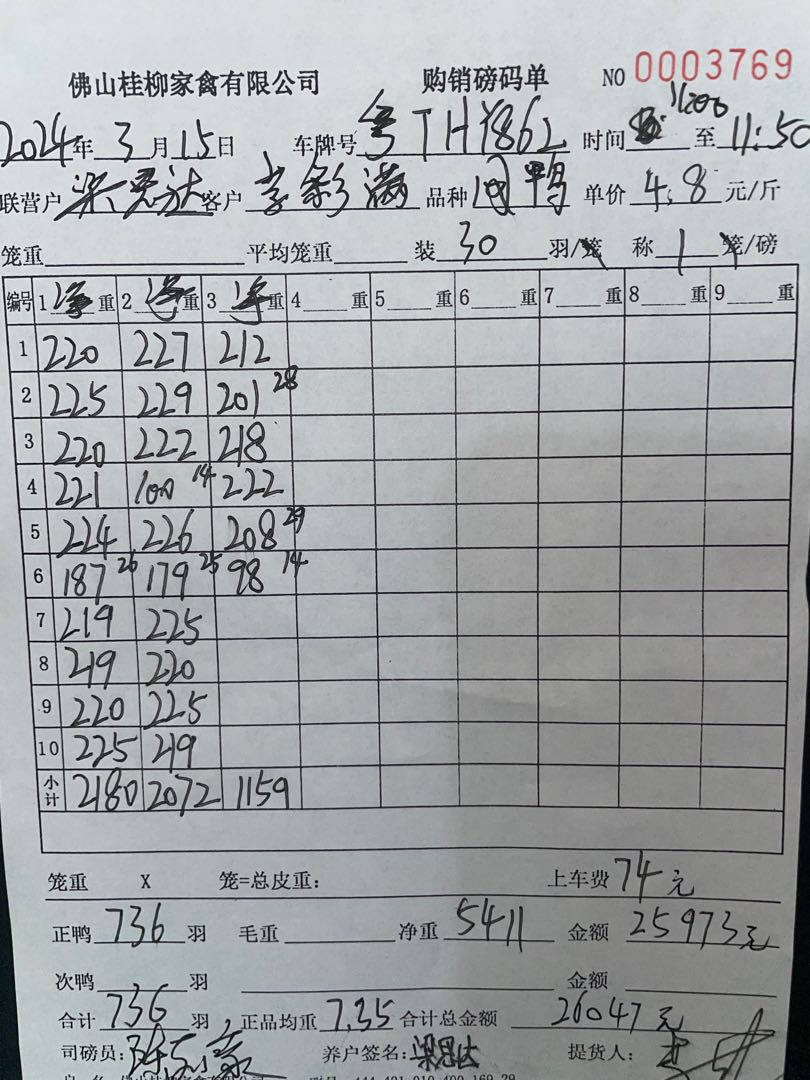 佛山桂柳家禽有限公司 购销磅码单 NO 0003769
2024年 3 月 15 日 车牌号 粤THY862 时间 11:00 至 11:50
联营户 客户 李彩满 品种 鸭 单价 4.8 元/斤
笼重 平均笼重 装 30 羽/笼 称 1 笼/磅
编号 1 净重 2 净重 3 净重 4 重 5 重 6 重 7 重 8 重 9 重
1 220 227 212
2 225 229 201 28
3 220 222 218
4 221 100 14 222
5 224 226 208 29
6 187 26 179 25 98 14
7 219 225
8 219 220
9 220 225
10 225 219
小计 2180 2072 1159
笼重 X 笼=总皮重: 上车费 74 元
正鸭 736 羽 毛重 净重 5411 金额 25973元
次鸭 羽 金额
合计 736 羽 正品均重 7.35 合计总金额 26047 元
司磅员: 养户签名: 提货人: